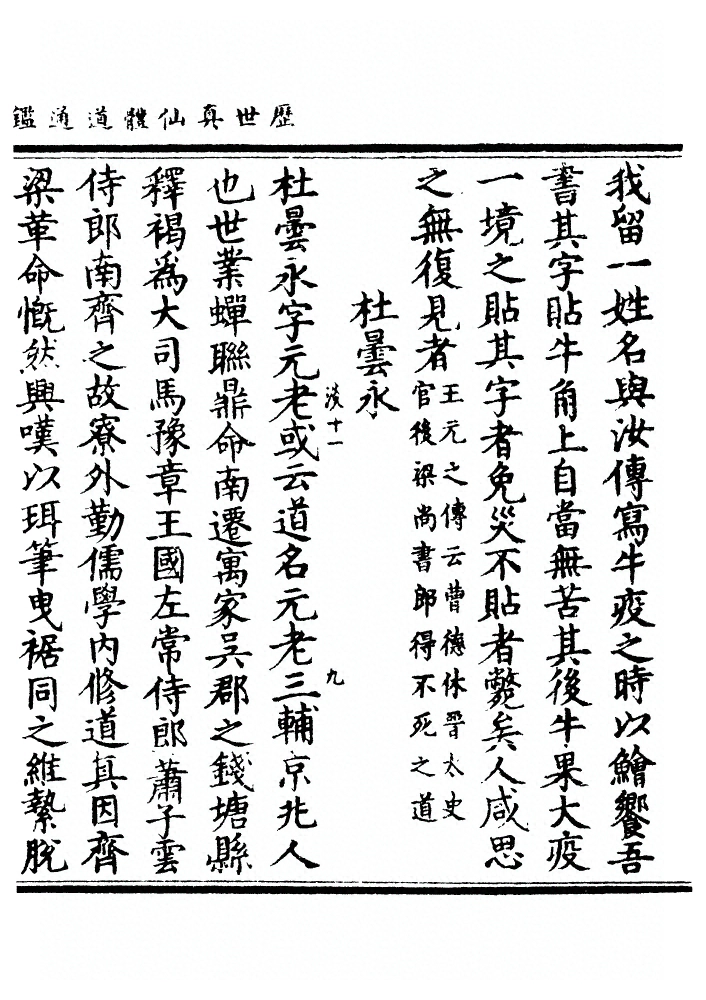 歷世真仙體道通鑑
我留一姓名與汝傳寫牛疫之時以鱠饗吾
書其字貼牛角上自當無苦其後牛果大疫
一境之貼其字者免災不貼者斃矣人咸思
之無復見者王元之傳云曹德休晉太史
官後梁尚書郎得不死之道
杜曇永
淡十一
九
杜曇永字元老或云道名元老三輔京兆人
也世業蟬聯鼎命南遷寓家吳郡之錢塘縣
釋褐為大司馬豫章王國左常侍郎蕭子雲
侍郎南齊之故寮外勤儒學內修道真因齊
梁革命慨然興嘆以珥筆曳裾同之維縶脫